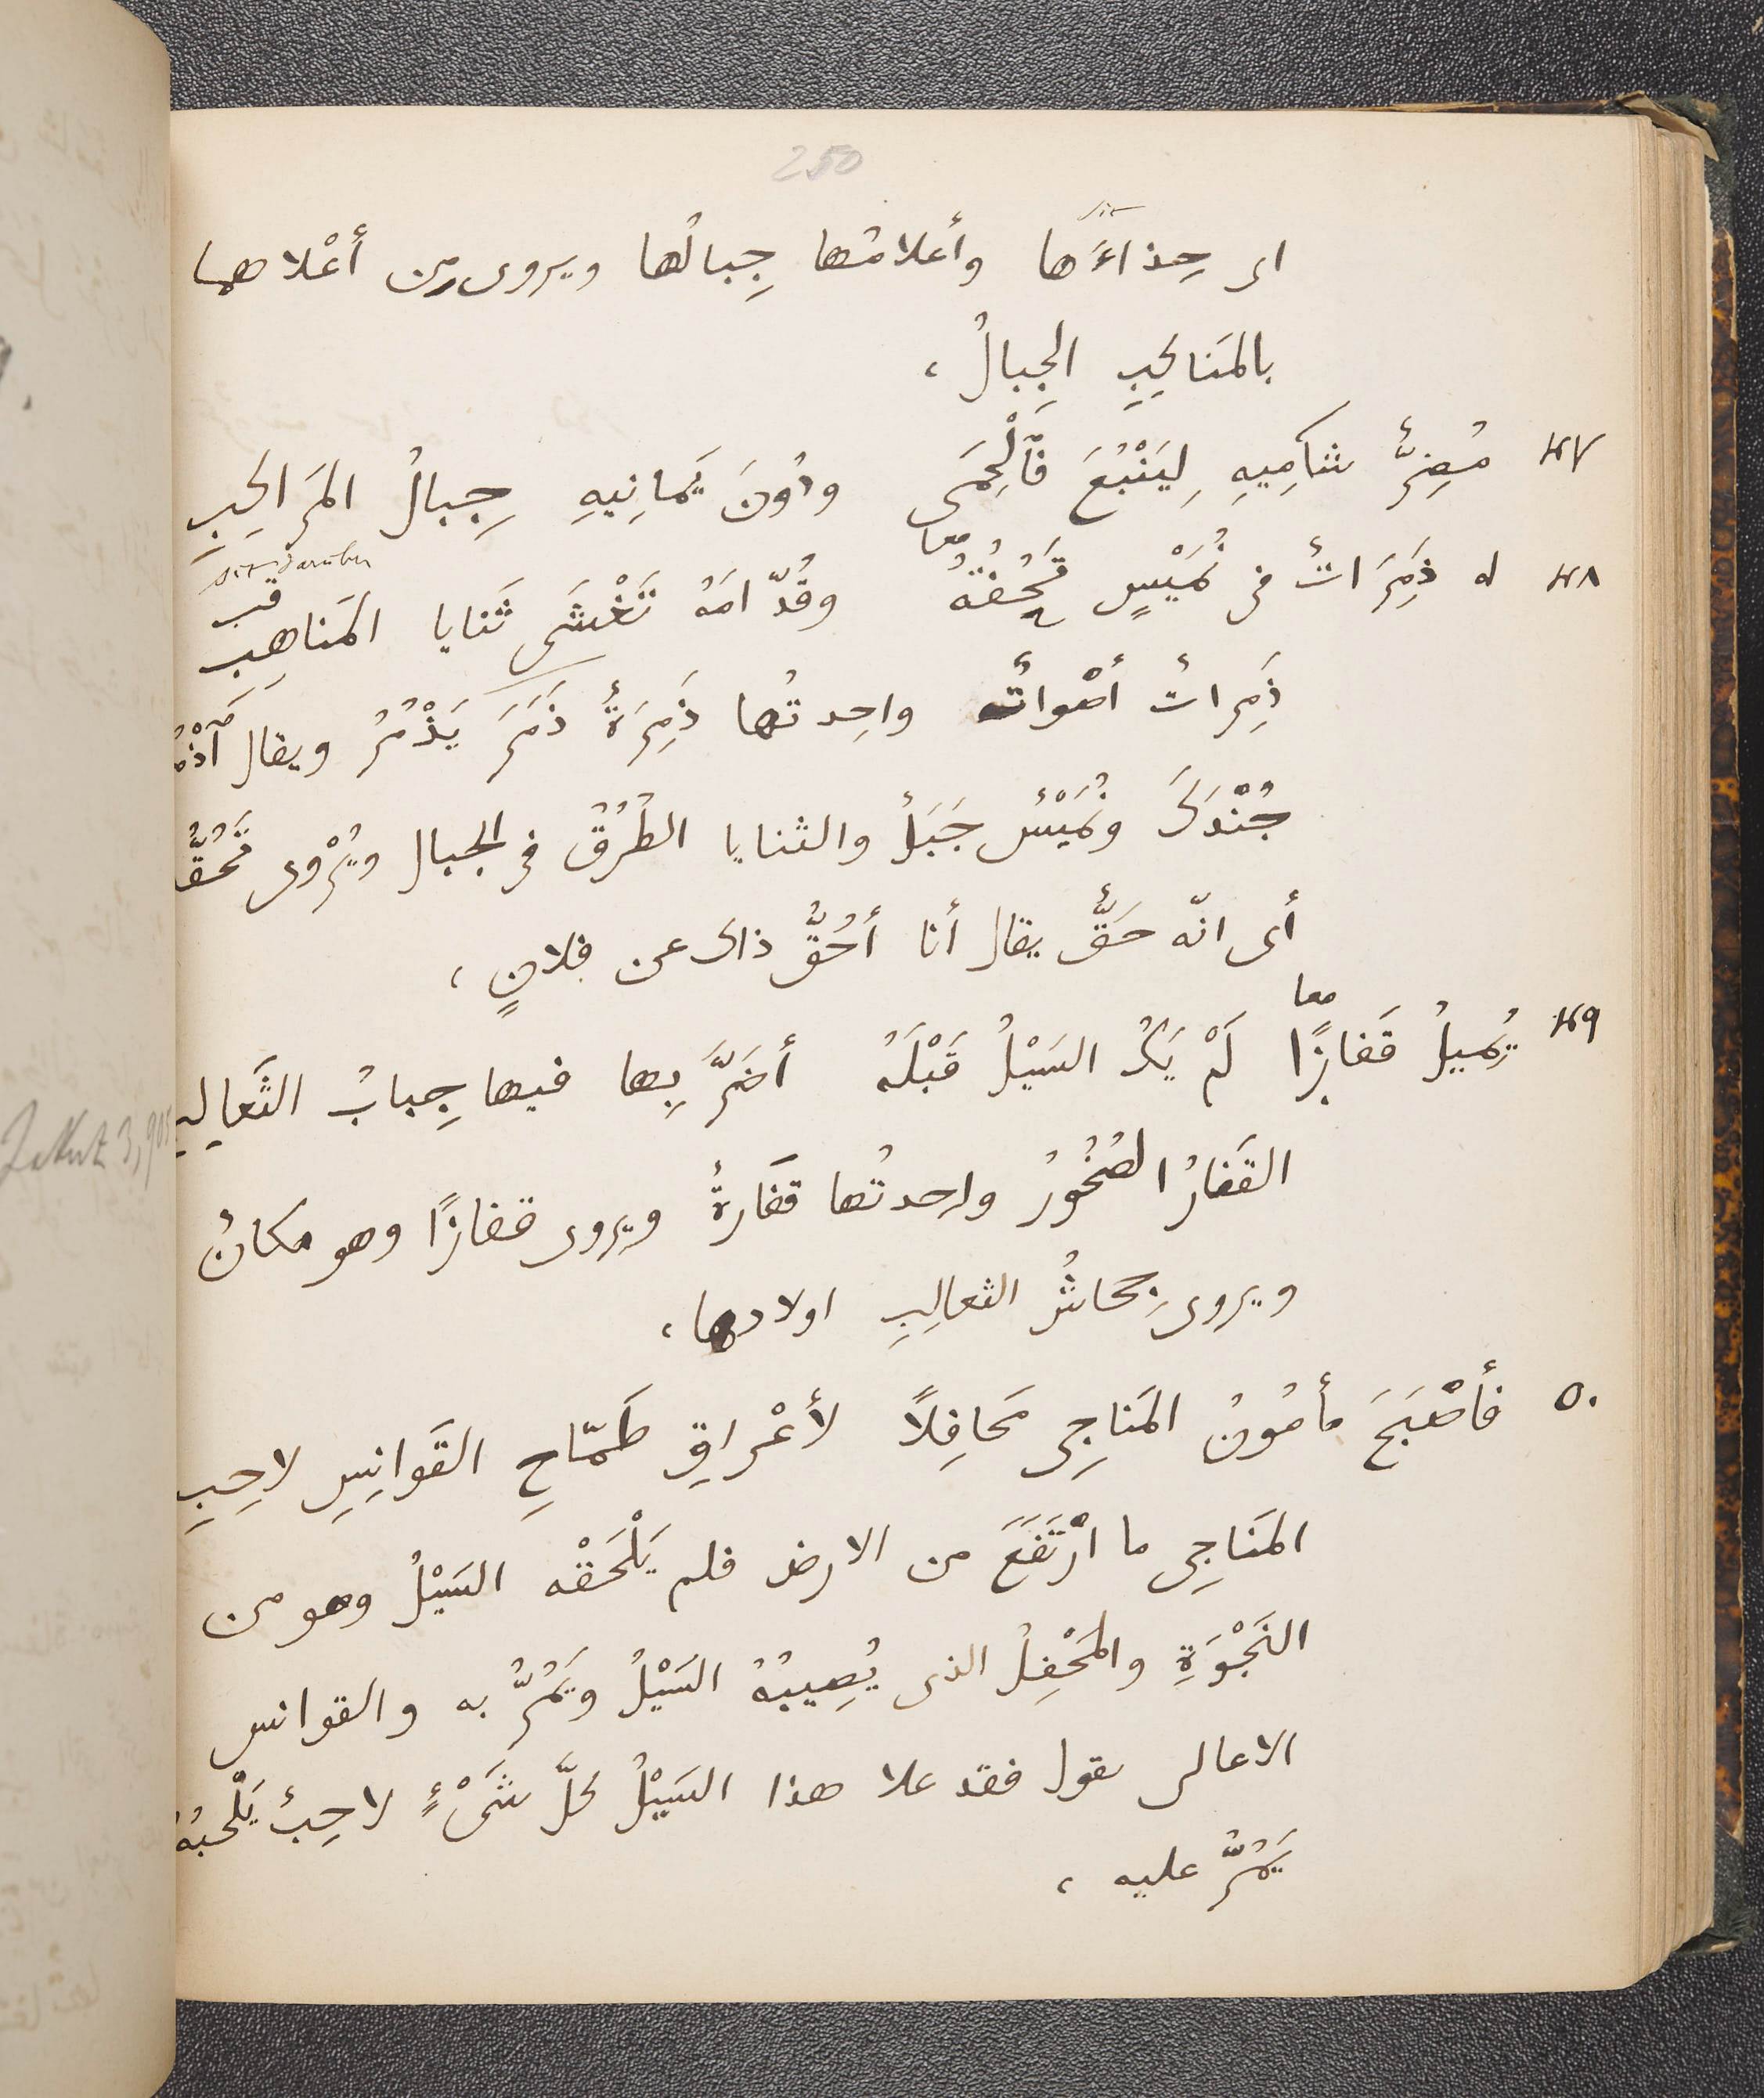 250
sic
اى حِذاءَها وأعلامُها جِبالُها ويروى مِن أَعْلاهما
بالمَناكِبِ الجِبالُ ،
٤٧ مُضِرٌّ شآمِيهِ لِيَنْبُعَ فَٱلْحِمَى ودُونَ يَمانِيهِ جِبالُ المَراكِبِ
معا
sic darüber
قب
٤٨ له ذَمِرَاتٌ فى نُمَيْسٍ تَحُفُّهُ وقُدّامَهُ تَغْشَى ثَنايا المَناهِبِ
ذَمِراتٌ أصْواتٌ واحِدتُها ذَمِرَةٌ ذَمَرَ يَذْمُرُ ويقال
جُنْدَكَ ونُمَيْسٌ جَبَلٌ والثنايا الطُرُقُ فى الجبال ويُرْوى تَحُقُّهُ
أى انّه حَقٌّ يقال أنا أَحُقُّ ذاك عن فلانٍ ،
معا
٤٩ يُمِيلُ قَفازًا لَمْ يَكُ السَيْلُ قَبْلَهُ أضَرَّ بِها فيها جِبابُ الثَعالِبِ
القَفازُ الصُخُورُ واحدتُها قَفَازةٌ ويروى قفازًا وهو مكانٌ
ويروى جِحاشُ الثعالِبِ اولادها ،
Jakut 3, 905
٥٠ فأَصْبَحَ مأمُونُ المَناجِى مَحافِلًا لأَعْراقِ طَمّاحِ القَوانِسِ لاحِبِ
المَناجِى ما ارْتَفَعَ من الارض فلم يَلْحَقْه السَيْلُ وهو من
النَجْوَةِ والمَحْفِلُ الذى يُصِيبُهُ السَيْلُ ويَمُرُّ به والقوانس
الاعالى يقول فقد علا هذا السَيْلُ كلَّ شَىْءٍ لاحِبٌ يَلْحَبُهُ
يَمُرُّ عليه ،